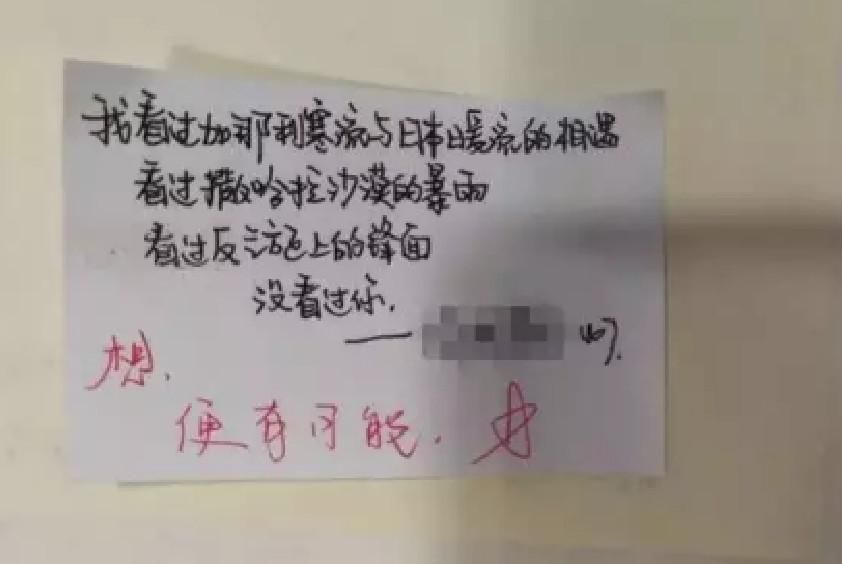 我看过加那利寒流与日本暖流的相遇
看过撒哈拉沙漠的暴雨
看过反气旋上的锋面
没看过你.
——
想.
便有可能.